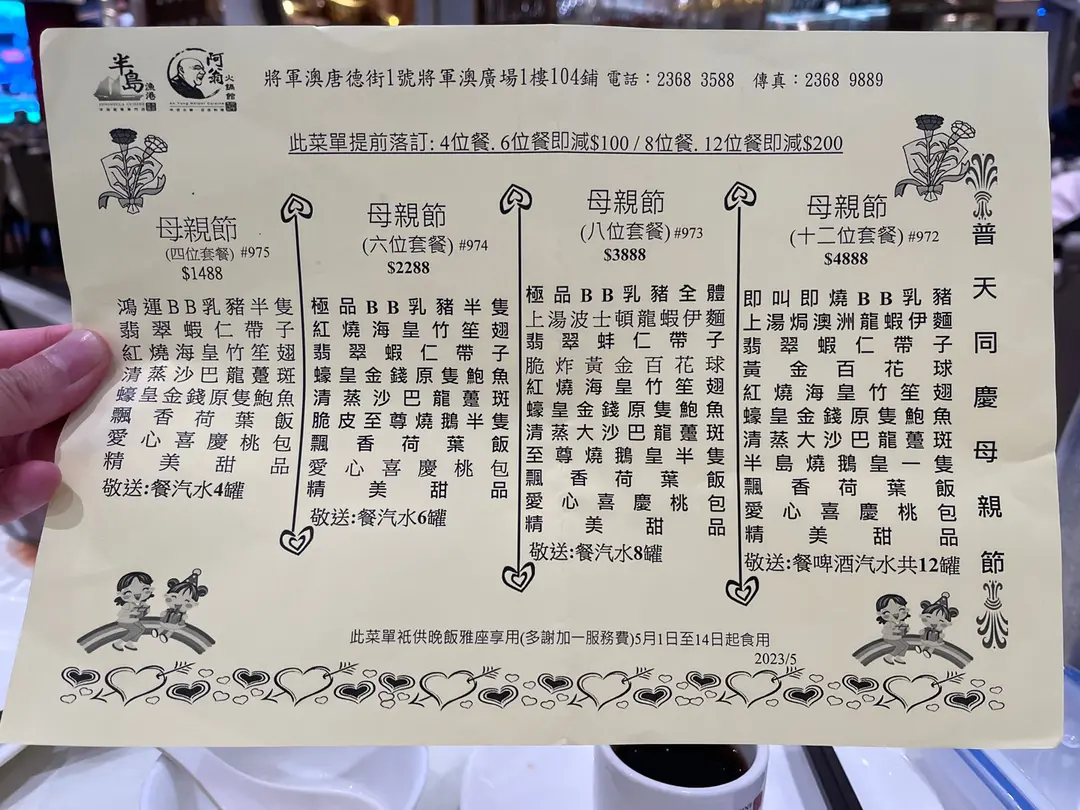 半島
漁港
阿翁
火鍋館
將軍澳唐德街1號將軍澳廣場1樓104鋪 電話：2368 3588 傳真：2368 9889
此菜單提前落訂: 4位餐. 6位餐即減$100 / 8位餐. 12位餐即減$200
普天同慶母親節
母親節
(四位套餐) #975
$1488
鴻運BB乳豬半隻
翡翠蝦仁帶子
紅燒海皇竹笙翅
清蒸沙巴龍躉斑
蠔皇金錢原隻鮑魚
飄香荷葉飯
愛心喜慶桃包
精美甜品
敬送:餐汽水4罐
母親節
(六位套餐) #974
$2288
極品BB乳豬半隻
紅燒海皇竹笙翅
翡翠蝦仁帶子
蠔皇金錢原隻鮑魚
清蒸沙巴龍躉斑
脆皮至尊燒鵝半隻
飄香荷葉飯
愛心喜慶桃包
精美甜品
敬送:餐汽水6罐
母親節
(八位套餐) #973
$3888
極品BB乳豬全體
上湯波士頓龍蝦伊麵
翡翠蚌仁帶子
脆炸黃金百花球
紅燒海皇竹笙翅
蠔皇金錢原隻鮑魚
清蒸大沙巴龍躉斑
至尊燒鵝皇半隻
飄香荷葉飯
愛心喜慶桃包
精美甜品
敬送:餐汽水8罐
母親節
(十二位套餐) #972
$4888
即叫即燒BB乳豬
上湯焗澳洲龍蝦伊麵
翡翠蝦仁帶子
黃金百花球
紅燒海皇竹笙翅
蠔皇金錢原隻鮑魚
清蒸大沙巴龍躉斑
半島燒鵝皇一隻
飄香荷葉飯
愛心喜慶桃包
精美甜品
敬送:餐啤酒汽水共12罐
此菜單衹供晚飯雅座享用(多謝加一服務費)5月1日至14日起食用
2023/5